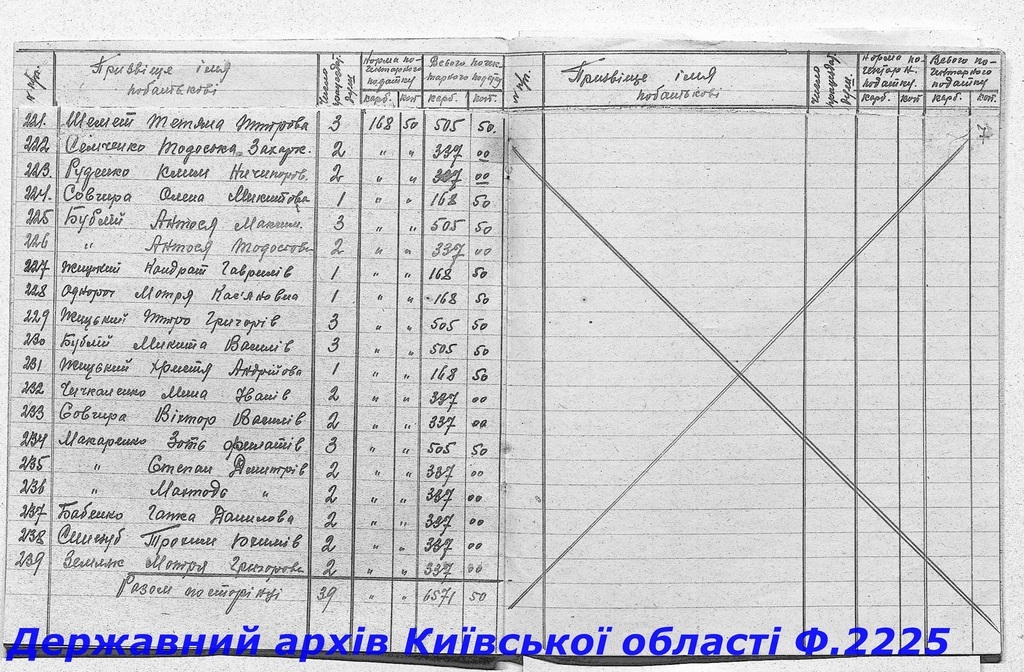 № п/р. Прізвище імя побатькові Число працездат. душ. Норма почентарного податку Всього почентарного податку
карб. коп карб. коп.
221. Шемет Тетяна Дмитрова 3 168 50 505 50.
222 Семченко Тодоська Захарк. 2 " " 337 00
223. Руденко Клим Ничипоров. 2 " " 337 00
224. Совгира Олена Микитова 1 " " 168 50
225 Бублій Антося Максим. 3 " " 505 50
226 " Антося Тодосова 2 " " 337 00
227 Жицкий Кондрат Гаврилів 1 " " 168 50
228 Однорог Мотря Касяновна 1 " " 168 50
229 Жицький Дмитро Григорів 3 " " 505 50
230 Бублій Микита Василів 3 " " 505 50
231 Жицький Христя Андріївова 1 " " 168 50
232 Чичкаленко Мина Іванів 2 " " 337 00
233 Совгира Віктор Василів 2 " " 337 00
234 Макаренко Зоть Филатів 3 " " 505 50
235 " Степан Дмитрів 2 " " 337 00
236 " " 2 " " 337 00
237 Бабенко Гапка Данилова 2 " " 337 00
238 Трохим 2 " " 337 00
239 Земляк Мотря Григорова 2 " " 337 00
Разом по сторінці 39 " " 6571 50
№ п/р. Прізвище імя побатькові Число працездат. душ. Норма почентарн. податку Всього почентарного податку
карб. коп карб. коп.
Державний архів Київської області Ф.2225